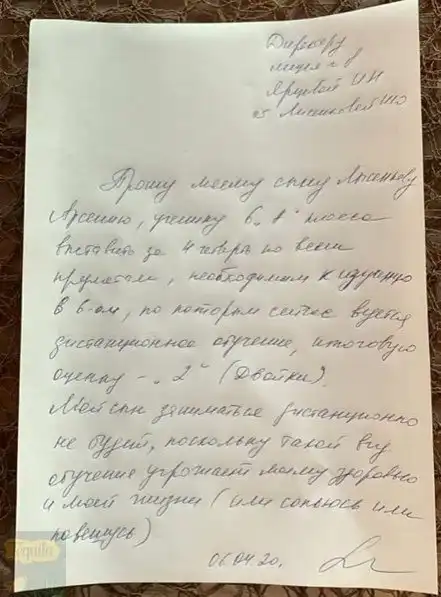 Директору
лицея № 8
Ярцевой И Н
от Лысенковой М Ю
Прошу моему сыну Лысенкову
Арсению, ученику 6 „А" класса
выставить за 4 четверть по всем
предметам, необходимым к изучению
в 6-ом, по которым сейчас ведется
дистанционное обучение, итоговую
оценку - „2" (Двойки).
Мой сын заниматься дистанционно
не будет, поскольку такой вид
обучение угрожает моему здоровью
и моей жизни (или сопьюсь или
повешусь)
06.04.20.
equila